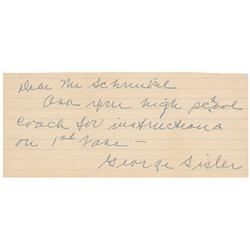 Dear Mr Schnutzle
Ask your high school
coach for instructions
on 1st base –
George Sisler